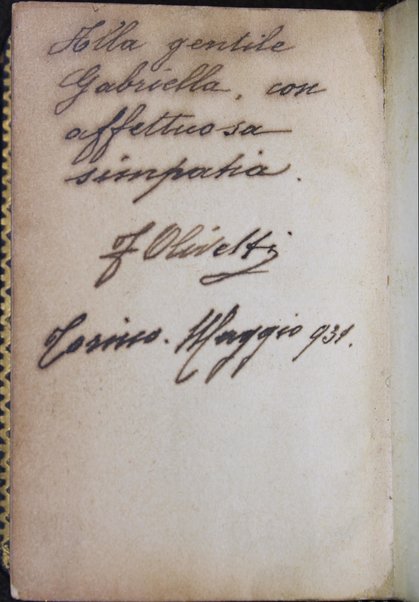 Alla gentile
Gabriella, con
affettuosa
simpatia.
F Olivetti
Torino. Maggio 931.